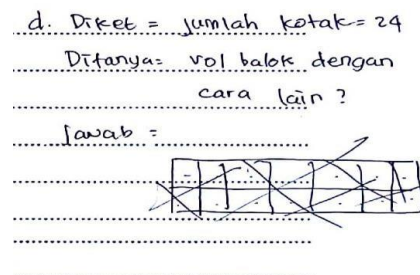 d. Diket = jumlah kotak = 24
Ditanya = vol balok dengan
cara lain ?
Jawab =